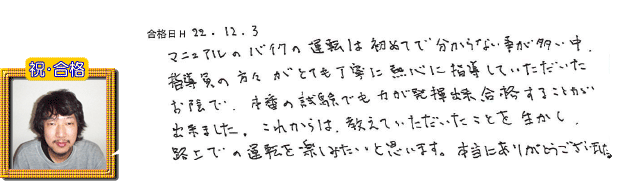 合格日 H 22.12.3
マニュアルのバイクの運転は初めてで分からない事が多い中、
祝・合格
指導員の方々がとても丁寧に熱心に指導していただいた
お陰で、本番の試験でも力が発揮出来合格することが
出来ました。これからは、教えていただいたことを生かし、
路上での運転を楽しみたいと思います。本当にありがとうございました。